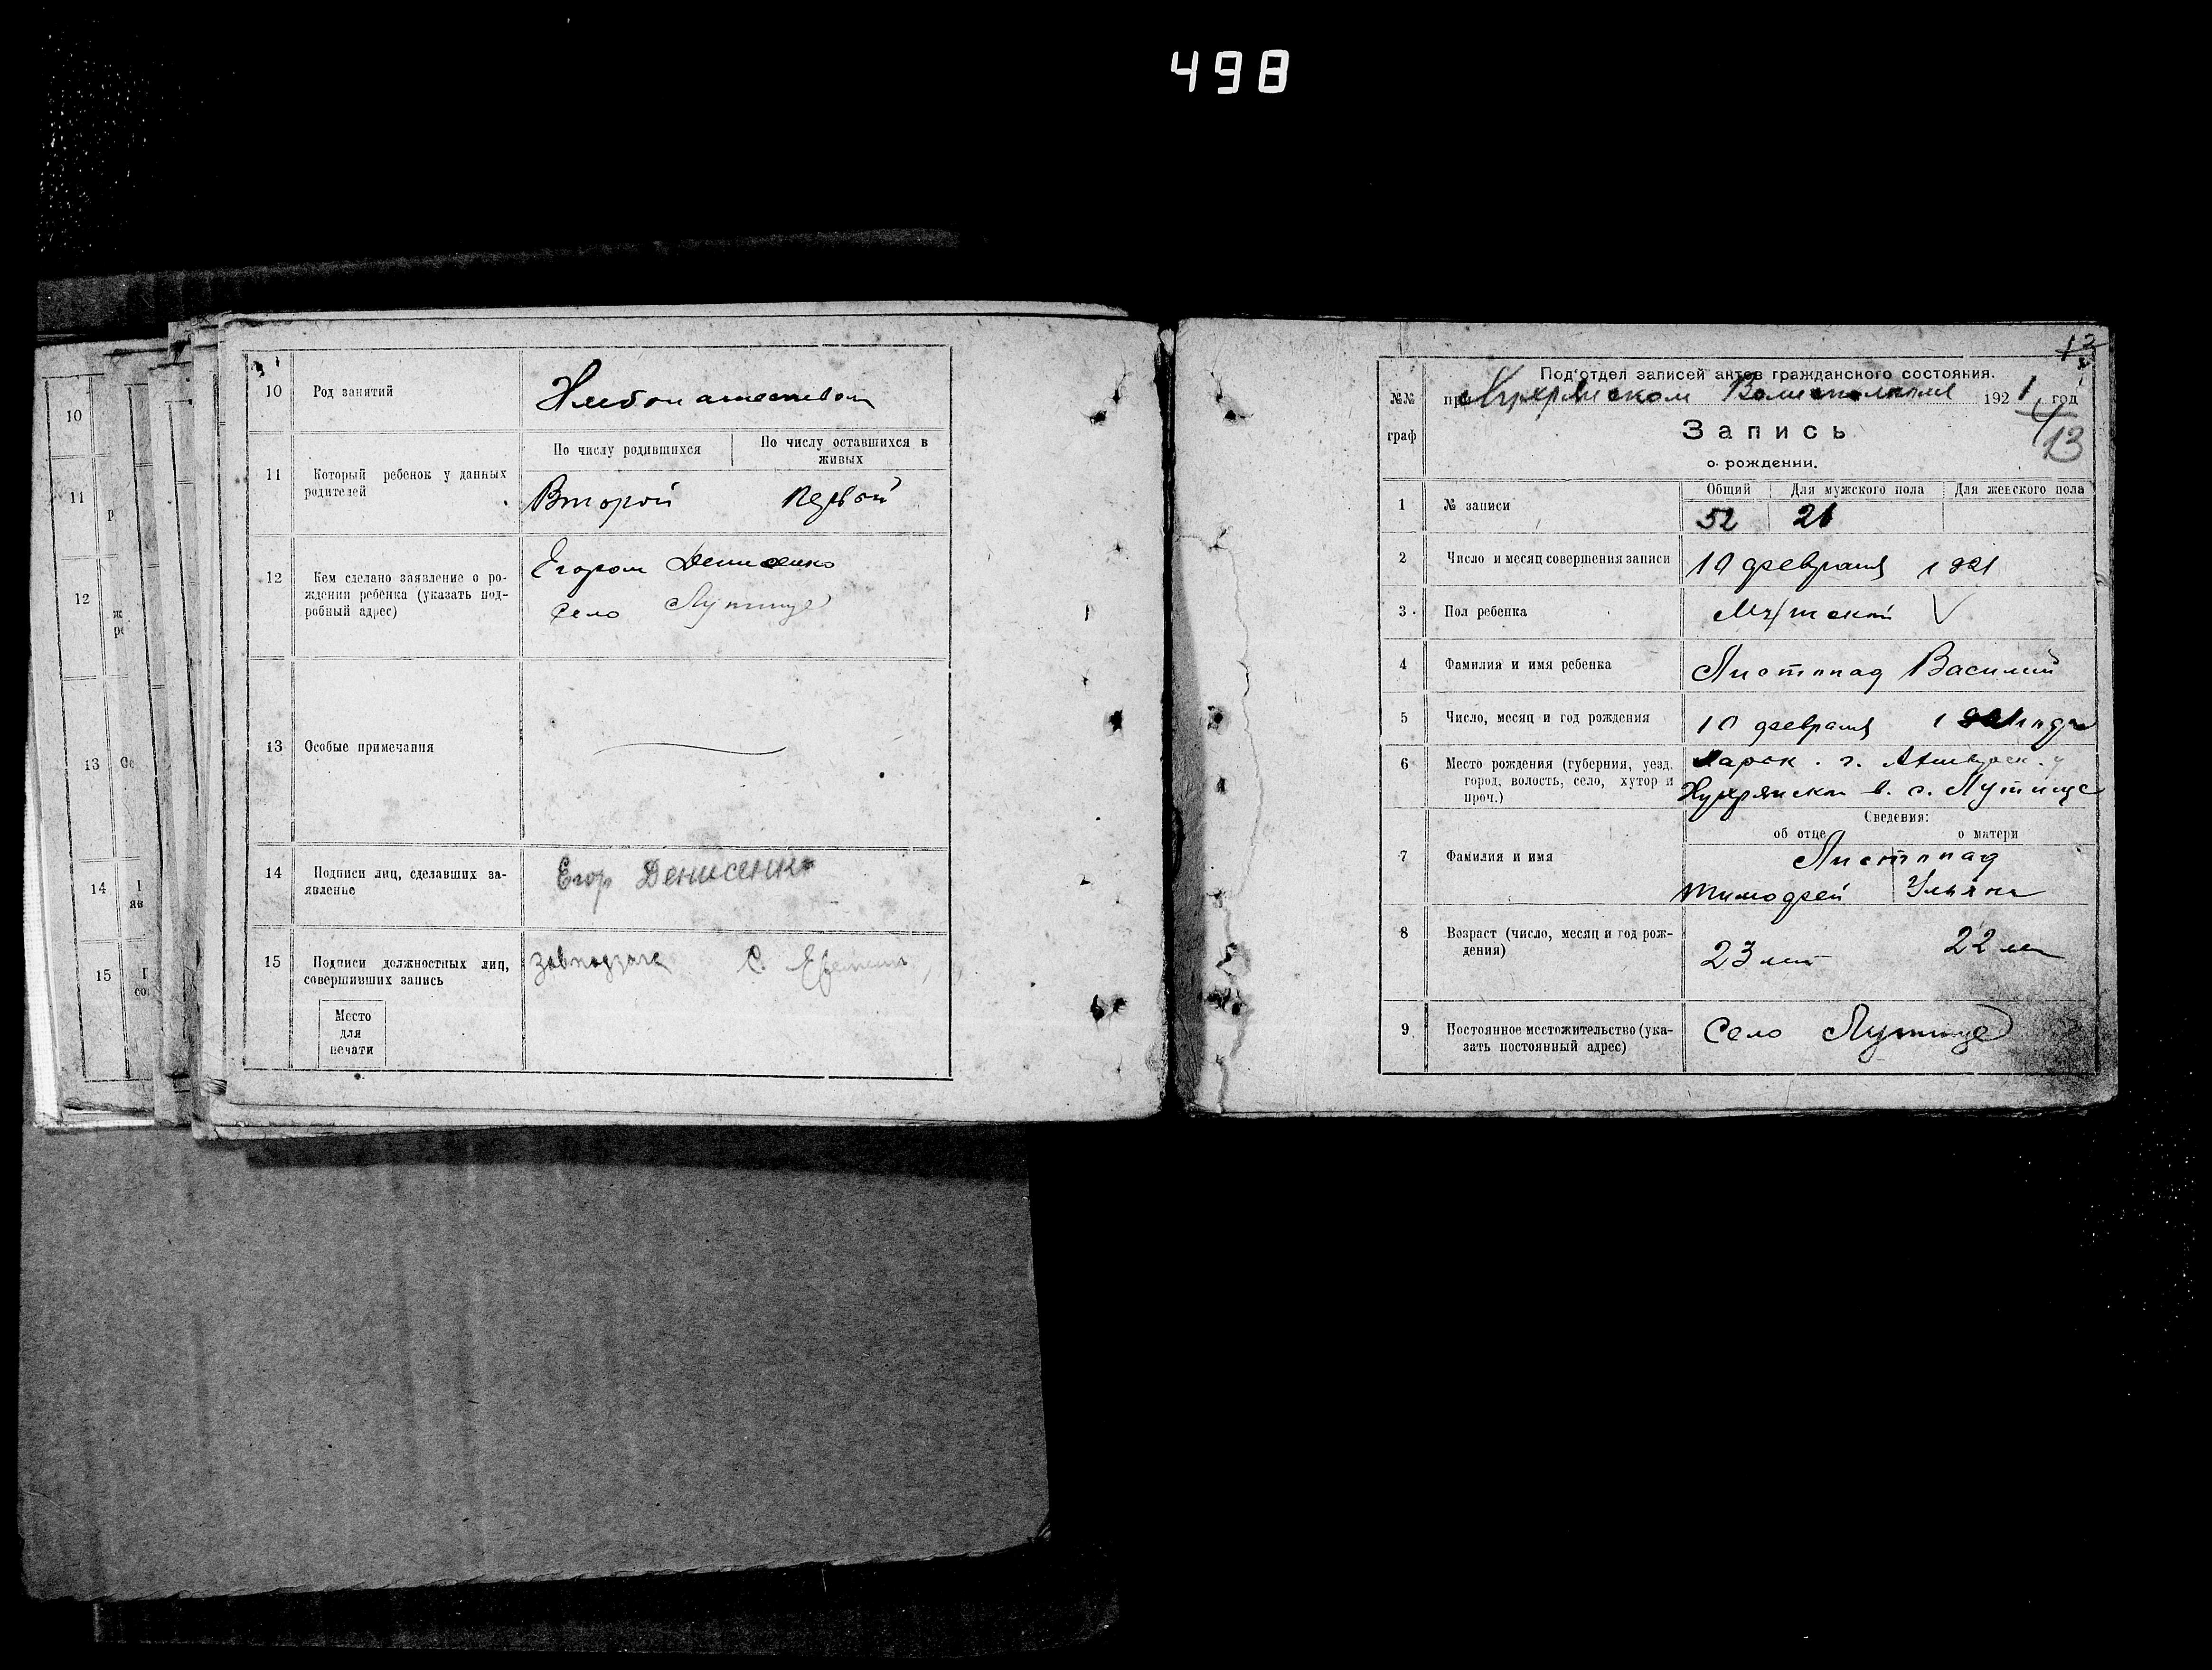 498
10 Род занятий Хлебопашеством
11 Который ребенок у данных
родителей
По числу родившихся
По числу оставшихся в
живых
Второй первый
12 Кем сделано заявление о ро-
ждении ребенка (указать под-
робный адрес)
Егором Денисенко
село Лутище
13 Особые примечания
14 Подписи лиц, сделавших за-
явление
Егор Денисенко
15 Подписи должностных лиц,
совершивших запись
С.
Место
для
печати
10
11
12
13
14
15
13
Под'отдел записей актов гражданского состояния.
№№ при Волисполкоме 1921 год
граф
Запись
13
о рождении.
Общий Для мужского пола Для женского пола
1 № записи 52 26
2 Число и месяц совершения записи 10 февраля 1921
3 Пол ребенка Мужской
4 Фамилия и имя ребенка Листопад Василий
5 Число, месяц и год рождения 10 февраля 1921 года
6 Место рождения (губерния, уезд,
город, волость, село, хутор и
проч.)
Харьк. г. Ахтырск. у
в. с. Лутище
Сведения:
об отце о матери
7 Фамилия и имя
Листопад
Тимофей Ульяна
8 Возраст (число, месяц и год рож-
дения)
23 лет 22 лет
9 Постоянное местожительство (ука-
зать постоянный адрес)
Село Лутище